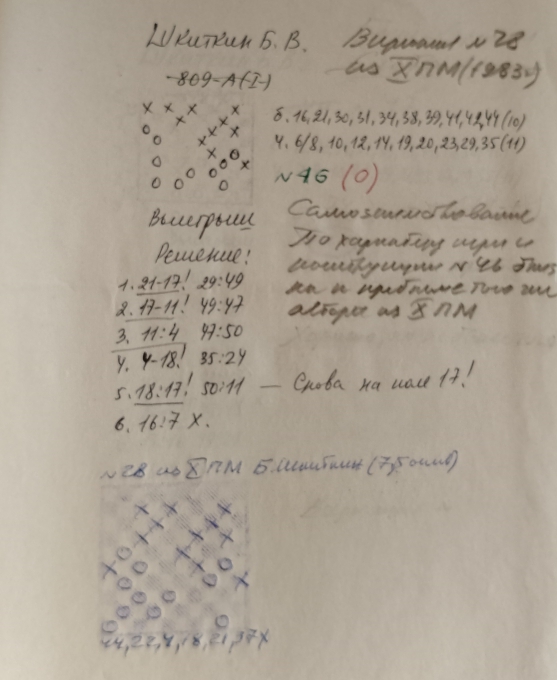 Шкиткин Б. В.
Вариант №28
из X ПМ (1983г)
809-А(I-)
б. 16,21,30,31,34,38,39,41,42,44 (10)
ч. 6/8, 10, 12, 14, 19, 20, 23, 29, 35 (11)
№46 (0)
Выигрыш
Самозаимствование
Решение!
По характеру игры и
1. 21-17! 29:49
конструкции №46 близ
2. 17-11! 49:47
ка и проблеме того же
3. 11:4 47:50
автора из X ПМ
4. 4-18! 35:24
5. 18:17! 50:11 — Снова на поле 17!
6. 16:7 X.
№28 из X ПМ Б. Шкиткин (7,5 очков)
18, 21, 37X